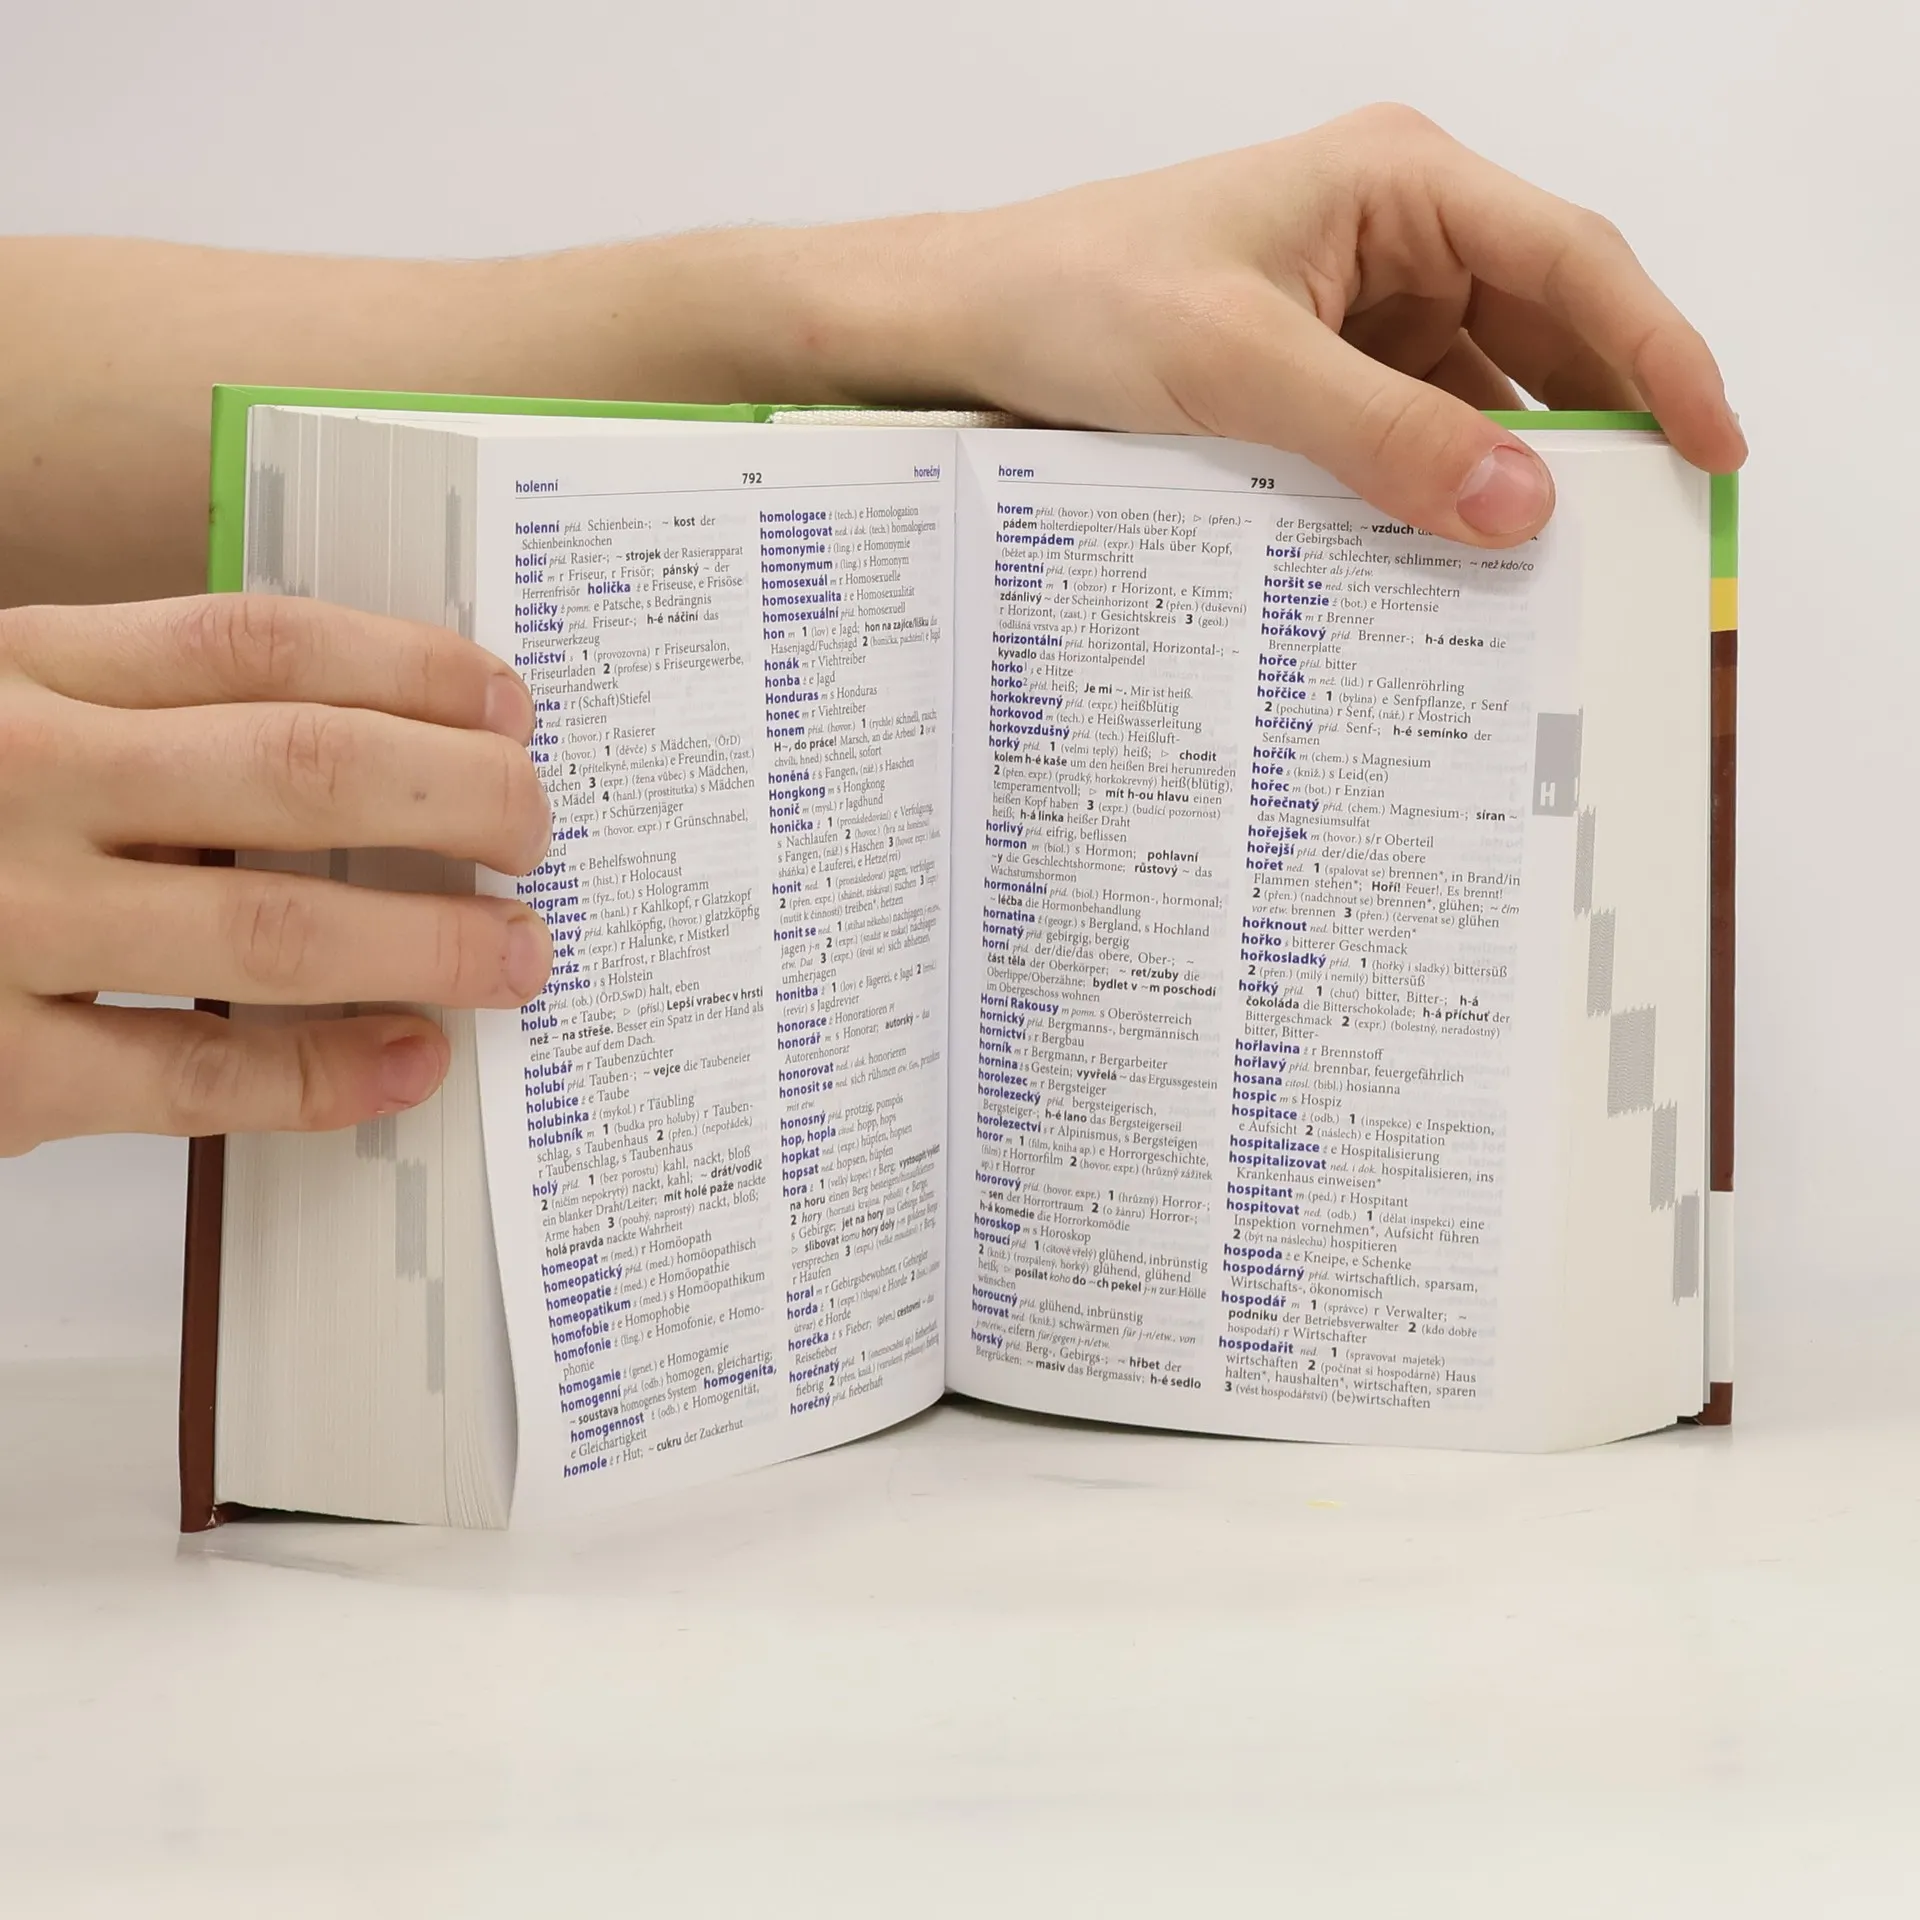 holenní 792 horečný
holenní příd. Schienbein-; ~ kost der
Schienbeinknochen
holicí příd. Rasier-; ~ strojek der Rasierapparat
holič m r Friseur, r Frisör; pánský ~ der
Herrenfrisör holička ž e Friseuse, e Frisöse
holičky ž pomn. e Patsche, s Bedrängnis
holičský příd. Friseur-; h-é náčiní das
Friseurwerkzeug
holičství s 1 (provozovna) r Friseursalon,
r Friseurladen 2 (profese) s Friseurgewerbe,
Friseurhandwerk
ínka ž r (Schaft)Stiefel
it ned. rasieren
lítko s (hovor.) r Rasierer
lka ž (hovor.) 1 (děvče) s Mädchen, (ÖrD)
Mädel 2 (přítelkyně, milenka) e Freundin, (zast.)
dchen 3 (expr.) (žena vůbec) s Mädchen,
s Mädel 4 (hanl.) (prostitutka) s Mädchen
ř m (expr.) r Schürzenjäger
rádek m (hovor. expr.) r Grünschnabel,
und
obyt m e Behelfswohnung
holocaust m (hist.) r Holocaust
ologram m (fyz., fot.) s Hologramm
hlavec m (hanl.) r Kahlkopf, r Glatzkopf
hlavý příd. kahlköpfig, (hovor.) glatzköpfig
nek m (expr.) r Halunke, r Mistkerl
mráz m r Barfrost, r Blachfrost
stýnsko s Holstein
holt přísl. (ob.) (ÖrD,SwD) halt, eben
holub m e Taube; ▷ (přísl.) Lepší vrabec v hrsti
než ~ na střeše. Besser ein Spatz in der Hand als
eine Taube auf dem Dach.
holubář m r Taubenzüchter
holubí příd. Tauben-; ~ vejce die Taubeneier
holubice ž e Taube
holubinka ž (mykol.) r Täubling
holubník m 1 (budka pro holuby) r Tauben-
schlag, s Taubenhaus 2 (přen.) (nepořádek)
r Taubenschlag, s Taubenhaus
holý příd. 1 (bez porostu) kahl, nackt, bloß
2 (ničím nepokrytý) nackt, kahl; ~ drát/vodič
ein blanker Draht/Leiter; mít holé paže nackte
Arme haben 3 (pouhý, naprostý) nackt, bloß;
holá pravda nackte Wahrheit
homeopat m (med.) r Homöopath
homeopatický příd. (med.) homöopathisch
homeopatie ž (med.) e Homöopathie
homeopatikum s (med.) s Homöopathikum
homofobie ž e Homophobie
homofonie ž (ling.) e Homofonie, e Homo-
phonie
homogamie ž (genet.) e Homogamie
homogenní příd. (odb.) homogen, gleichartig;
~ soustava homogenes System homogenita,
homogennost ž (odb.) e Homogenität,
e Gleichartigkeit
homole ž r Hut; ~ cukru der Zuckerhut
homologace ž (tech.) e Homologation
homologovat ned. i dok. (tech.) homologieren
homonymie ž (ling.) e Homonymie
homonymum s (ling.) s Homonym
homosexuál m r Homosexuelle
homosexualita ž e Homosexualität
homosexuální příd. homosexuell
hon m 1 (lov) e Jagd; hon na zajíce/lišku die
Hasenjagd/Fuchsjagd 2 (honička, pachtění) e Jagd
honák m r Viehtreiber
honba ž e Jagd
Honduras m s Honduras
honec m r Viehtreiber
honem přísl. (hovor.) 1 (rychle) schnell, rasch;
H~, do práce! Marsch, an die Arbeit! 2 (v té
chvíli, hned) schnell, sofort
honěná ž s Fangen, (nář.) s Haschen
Hongkong m s Hongkong
honič m (mysl.) r Jagdhund
honička ž 1 (pronásledování) e Verfolgung,
s Nachlaufen 2 (hovor.) (hra na honěnou)
s Fangen, (nář.) s Haschen 3 (hovor. expr.) (shon,
sháňka) e Lauferei, e Hetze(rei)
honit ned. 1 (pronásledovat) jagen, verfolgen
2 (přen. expr.) (shánět, získávat) suchen 3 (expr.)
(nutit k činnosti) treiben*, hetzen
honit se ned. 1 (stíhat někoho) nachjagen j-m/etw.,
jagen j-n 2 (expr.) (snažit se získat) nachjagen
etw. Dat 3 (expr.) (štvát se) sich abhetzen,
umherjagen
honitba ž 1 (lov) e Jägerei, e Jagd 2 (mysl.)
(revír) s Jagdrevier
honorace ž Honoratioren Pl
honorář m s Honorar; autorský ~ das
Autorenhonorar
honorovat ned. i dok. honorieren
honosit se ned. sich rühmen etw. Gen, prunken
mit etw.
honosný příd. protzig, pompös
hop, hopla citosl. hopp, hops
hopkat ned. (expr.) hüpfen, hopsen
hopsat ned. hopsen, hüpfen
hora ž 1 (velký kopec) r Berg; vystoupit/vylézt
na horu einen Berg besteigen/hinaufklettern
2 hory (hornatá krajina, pohoří) e Berge,
s Gebirge; jet na hory ins Gebirge fahren;
▷ slibovat komu hory doly j-m goldene Berge
versprechen 3 (expr.) (velké množství) r Berg,
r Haufen
horal m r Gebirgsbewohner, r Gebirgler
horda ž 1 (expr.) (tlupa) e Horde 2 (hist.)
útvar) e Horde
horečka ž s Fieber; (přen.) cestovní ~ das
Reisefieber
horečnatý příd. 1 (onemocnění ap.) fieberhaft,
fiebrig 2 (přen. kniž.)
horečný příd. fieberhaft
horem 793
horem přísl. (hovor.) von oben (her); ▷ (přen.) ~
pádem holterdiepolter/Hals über Kopf
horempádem přísl. (expr.) Hals über Kopf,
(běžet ap.) im Sturmschritt
horentní příd. (expr.) horrend
horizont m 1 (obzor) r Horizont, e Kimm;
zdánlivý ~ der Scheinhorizont 2 (přen.) (duševní)
r Horizont, (zast.) r Gesichtskreis 3 (geol.)
(odlišná vrstva ap.) r Horizont
horizontální příd. horizontal, Horizontal-; ~
kyvadlo das Horizontalpendel
horko¹ s e Hitze
horko² přísl. heiß; Je mi ~. Mir ist heiß.
horkokrevný příd. (expr.) heißblütig
horkovod m (tech.) e Heißwasserleitung
horkovzdušný příd. (tech.) Heißluft-
horký příd. 1 (velmi teplý) heiß; ▷ chodit
kolem h-é kaše um den heißen Brei herumreden
2 (přen. expr.) (prudký, horkokrevný) heiß(blütig),
temperamentvoll; ▷ mít h-ou hlavu einen
heißen Kopf haben 3 (expr.) (budící pozornost)
heiß; h-á linka heißer Draht
horlivý příd. eifrig, beflissen
hormon m (biol.) s Hormon; pohlavní
~y die Geschlechtshormone; růstový ~ das
Wachstumshormon
hormonální příd. (biol.) Hormon-, hormonal;
~ léčba die Hormonbehandlung
hornatina ž (geogr.) s Bergland, s Hochland
hornatý příd. gebirgig, bergig
horní příd. der/die/das obere, Ober-; ~
část těla der Oberkörper; ~ ret/zuby die
Oberlippe/Oberzähne; bydlet v ~m poschodí
im Obergeschoss wohnen
Horní Rakousy m pomn. s Oberösterreich
hornický příd. Bergmanns-, bergmännisch
hornictví s r Bergbau
horník m r Bergmann, r Bergarbeiter
hornina ž s Gestein; vyvřelá ~ das Ergussgestein
horolezec m r Bergsteiger
horolezecký příd. bergsteigerisch,
Bergsteiger-; h-é lano das Bergsteigerseil
horolezectví s r Alpinismus, s Bergsteigen
horor m 1 (film, kniha ap.) e Horrorgeschichte,
(film) r Horrorfilm 2 (hovor. expr.) (hrůzný zážitek
ap.) r Horror
hororový příd. (hovor. expr.) 1 (hrůzný) Horror-;
~ sen der Horrortraum 2 (o žánru) Horror-;
h-á komedie die Horrorkomödie
horoskop m s Horoskop
horoucí příd. 1 (citově vřelý) glühend, inbrünstig
2 (kniž.) (rozpálený, horký) glühend, glühend
heiß; ▷ posílat koho do ~ch pekel j-n zur Hölle
wünschen
horoucný příd. glühend, inbrünstig
horovat ned. (kniž.) schwärmen für j-n/etw., von
j-m/etw., eifern für/gegen j-n/etw.
horský příd. Berg-, Gebirgs-; ~ hřbet der
Bergrücken; ~ masiv das Bergmassiv; h-é sedlo
der Bergsattel; ~ vzduch
der Gebirgsbach
horší příd. schlechter, schlimmer; ~ než kdo/co
schlechter als j./etw.
horšit se ned. sich verschlechtern
hortenzie ž (bot.) e Hortensie
hořák m r Brenner
hořákový příd. Brenner-; h-á deska die
Brennerplatte
hořce přísl. bitter
hořčák m než. (lid.) r Gallenröhrling
hořčice ž 1 (bylina) e Senfpflanze, r Senf
2 (pochutina) r Senf, (nář.) r Mostrich
hořčičný příd. Senf-; h-é semínko der
Senfsamen
hořčík m (chem.) s Magnesium
hoře s (kniž.) s Leid(en)
hořec m (bot.) r Enzian
hořečnatý příd. (chem.) Magnesium-; síran ~
das Magnesiumsulfat
hořejšek m (hovor.) s/r Oberteil
hořejší příd. der/die/das obere
hořet ned. 1 (spalovat se) brennen*, in Brand/in
Flammen stehen*; Hoří! Feuer!, Es brennt!
2 (přen.) (nadchnout se) brennen*, glühen; ~ čím
vor etw. brennen 3 (přen.) (červenat se) glühen
hořknout ned. bitter werden*
hořko s bitterer Geschmack
hořkosladký příd. 1 (hořký i sladký) bittersüß
2 (přen.) (milý i nemilý) bittersüß
hořký příd. 1 (chuť) bitter, Bitter-; h-á
čokoláda die Bitterschokolade; h-á příchuť der
Bittergeschmack 2 (expr.) (bolestný, neradostný)
bitter, Bitter-
hořlavina ž r Brennstoff
hořlavý příd. brennbar, feuergefährlich
hosana citosl. (bibl.) hosianna
hospic m s Hospiz
hospitace ž (odb.) 1 (inspekce) e Inspektion,
e Aufsicht 2 (náslech) e Hospitation
hospitalizace ž e Hospitalisierung
hospitalizovat ned. i dok. hospitalisieren, ins
Krankenhaus einweisen*
hospitant m (ped.) r Hospitant
hospitovat ned. (odb.) 1 (dělat inspekci) eine
Inspektion vornehmen*, Aufsicht führen
2 (být na náslechu) hospitieren
hospoda ž e Kneipe, e Schenke
hospodárný příd. wirtschaftlich, sparsam,
Wirtschafts-, ökonomisch
hospodář m 1 (správce) r Verwalter; ~
podniku der Betriebsverwalter 2 (kdo dobře
hospodaří) r Wirtschafter
hospodařit ned. 1 (spravovat majetek)
wirtschaften 2 (počínat si hospodárně) Haus
halten*, haushalten*, wirtschaften, sparen
3 (vést hospodářství) (be)wirtschaften
H